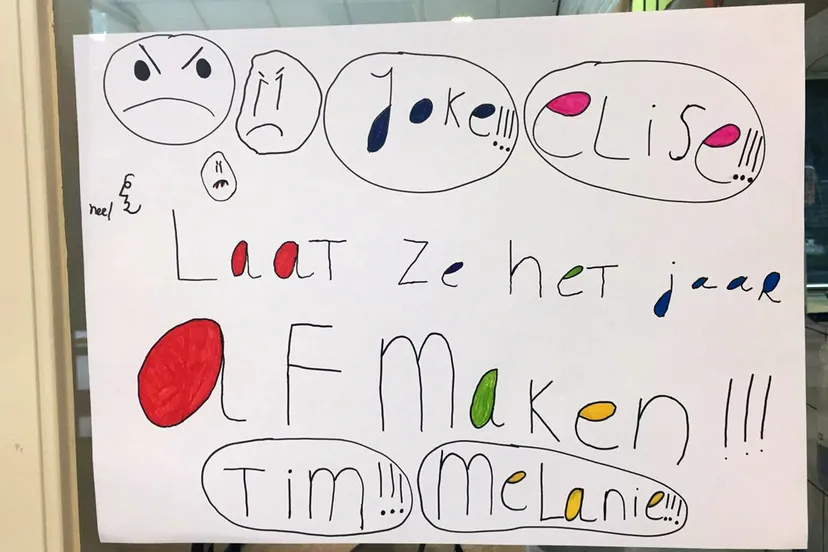 Joke!!! eLiSe!!!
neel
Laat ze het jaar
aF maken !!!
Tim!!! meLanie!!!